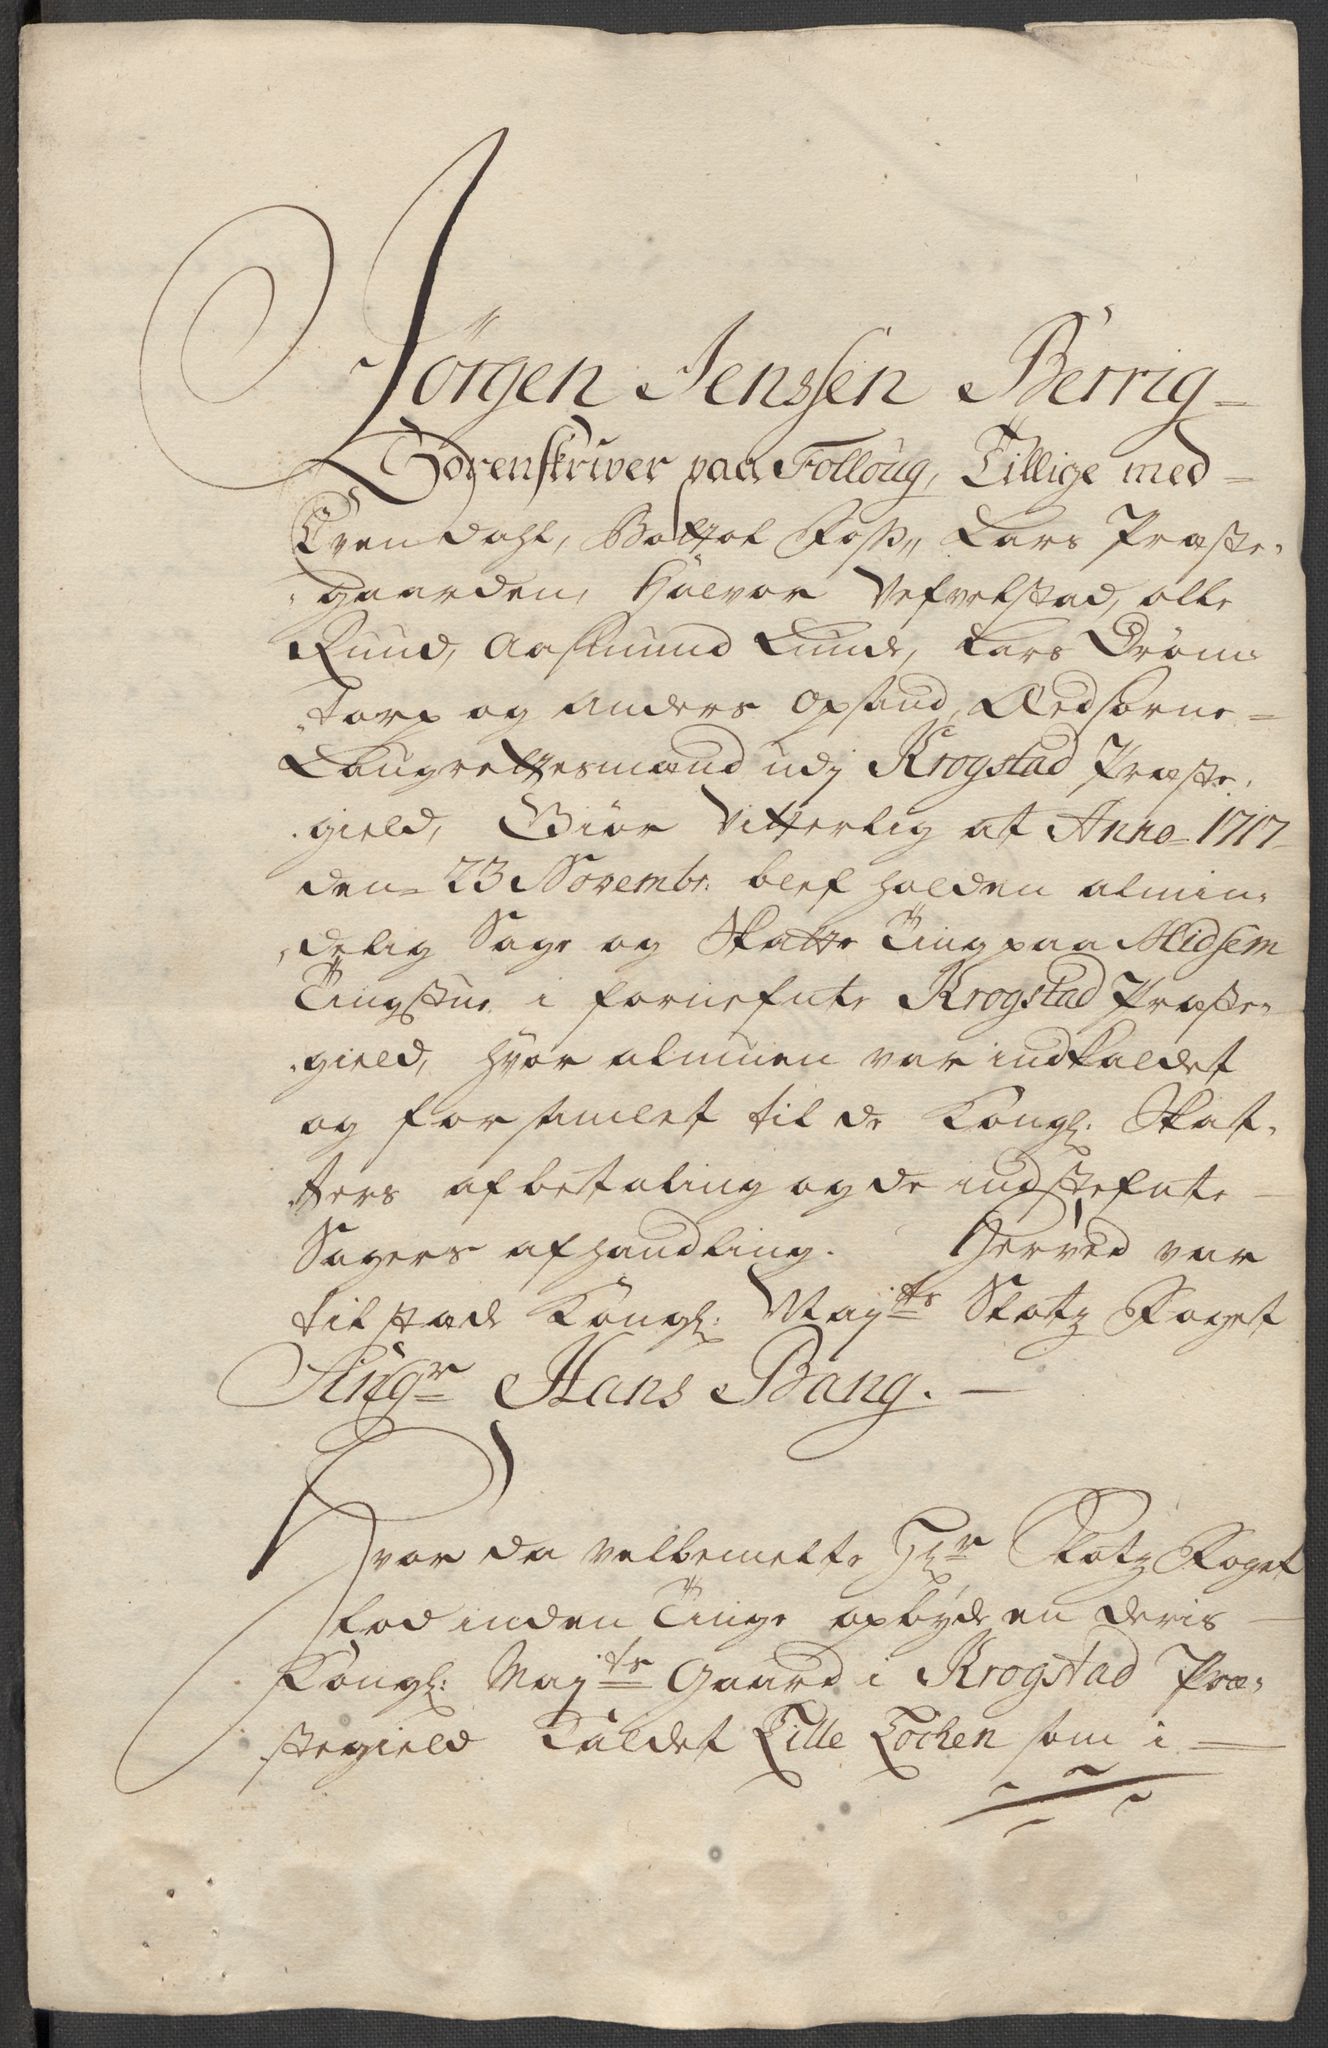 Jörgen Jenssen Berrig
Sorenskriver paa Folloug, Tillige med
Svendahl, Bottol Foss, Lars Præste-
gaarden, Halvor Vefvelstad, olle
Ruud, Aasmund Lunde, Lars Dröm-
torp og Anders Opsand, Eedsorne
Laugrettesmænd udj Krogstad Præste-
gield, Giör Vitterlig at Anno 1717
den 23 Novembr: blef holden almin-
delig Sage og Skatte Ting paa Midsem
Tingstue i fornefnte Krogstad Præste-
gield, hvor almuen var indkaldet
og forsamlet til de Kongl: Skat-
ters afbetaling og de indstefnte
Sagers afhandling. Herved var
tilstæde Kongl: Mayts Slotz Foget
Sigr Hans Bang.
Hvor da velbemelte Hr Slotz Foget
lod inden Tinge opbyde en deris
Kongl: Mayts Gaard i Krogstad Præ-
stegield Kaldet Lille Lochen som i